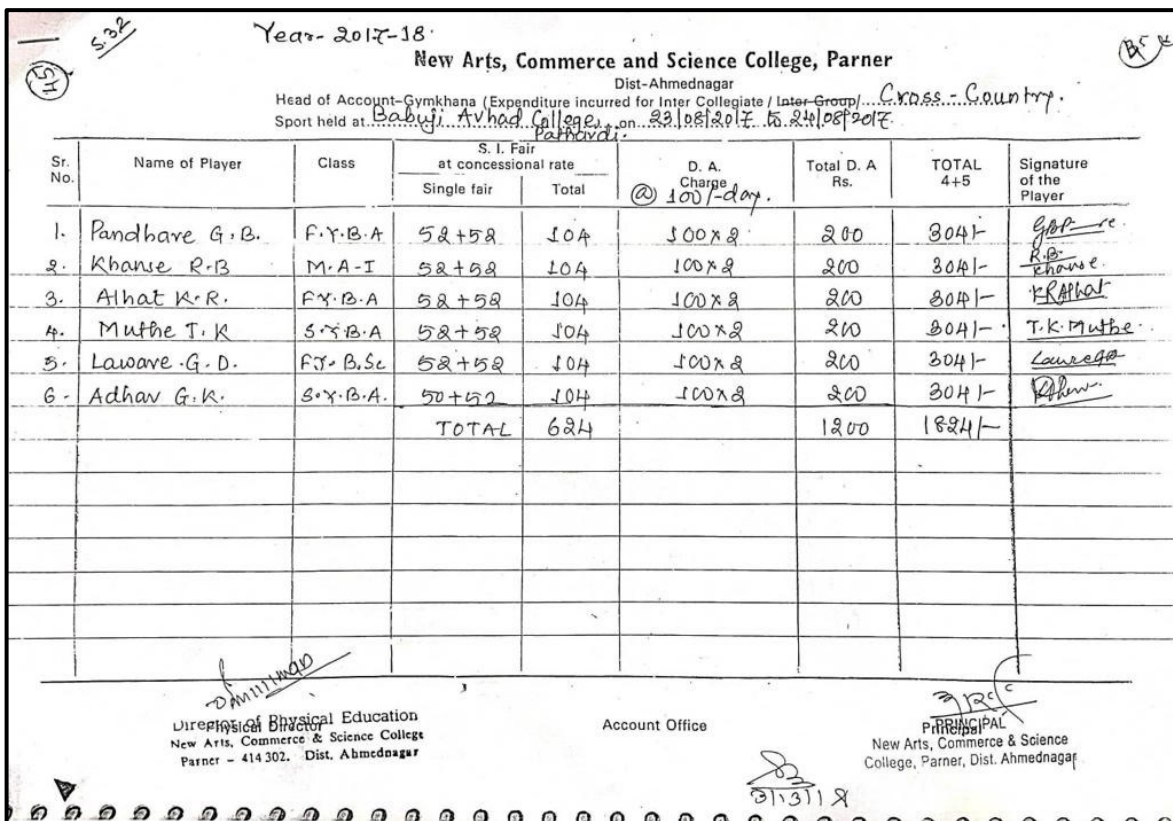 S.32
Year- 2017-18.
New Arts, Commerce and Science College, Parner
Dist-Ahmednagar
Head of Account-Gymkhana (Expenditure incurred for Inter Collegiate / Inter Group/....Cross-Country.
Sport held at..Babuji Avhad College,...on..23/08/2017 to 24/08/2017.
Pathardi.
Sr. No. Name of Player Class S. I. Fair at concessional rate Single fair Total D. A. Charge @ 100/-day. Total D. A Rs. TOTAL 4+5 Signature of the Player
1. Pandhare G.B. F.Y.B.A 52+52 104 100x2 200 304/-
2. Khanse R.B M.A-I 52+52 104 100x2 200 304/- R.B. Khanse.
3. Alhat K.R. F.Y.B.A 52+52 104 100x2 200 304/- KRAlhat
4. Muthe T.K S.Y.B.A 52+52 104 100x2 200 304/- T.K.Muthe
5. Laware.G.D. F.Y.B.Sc 52+52 104 100x2 200 304/-
6- Adhav G.K. S.Y.B.A. 50+52 104 100x2 200 304/-
TOTAL 624 1200 1824/-
Director of Physical Education
Physical Director
New Arts, Commerce & Science College
Parner - 414 302. Dist. Ahmednagar
Account Office
PRINCIPAL
Principal
New Arts, Commerce & Science
College, Parner, Dist. Ahmednagar